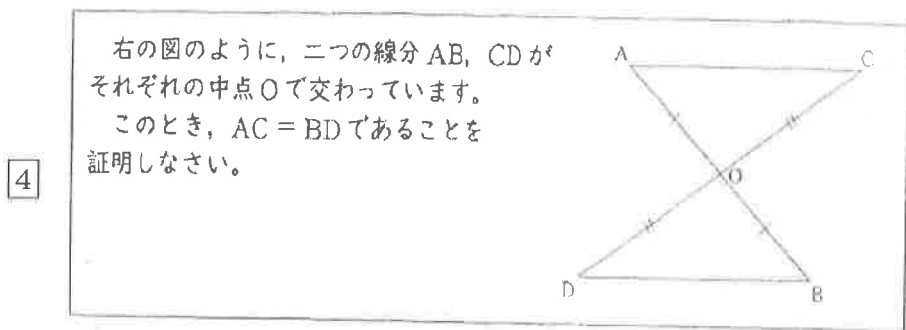 右の図のように，二つの線分 AB，CD が
それぞれの中点Oで交わっています。
このとき，AC = BD であることを
証明しなさい。
4
A
C
O
D
B